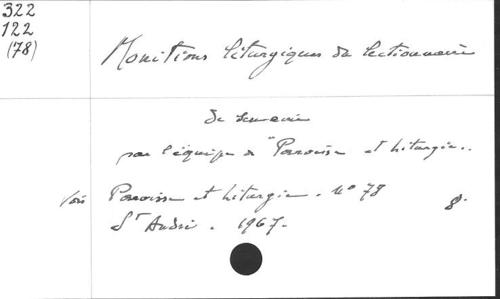 322
122
(78)
Monitions liturgiques du lectionnaire
de semaine
par l'équipe de "Paroisse et Liturgie".
Voir Paroisse et Liturgie. N° 78
8.
St André. 1967.